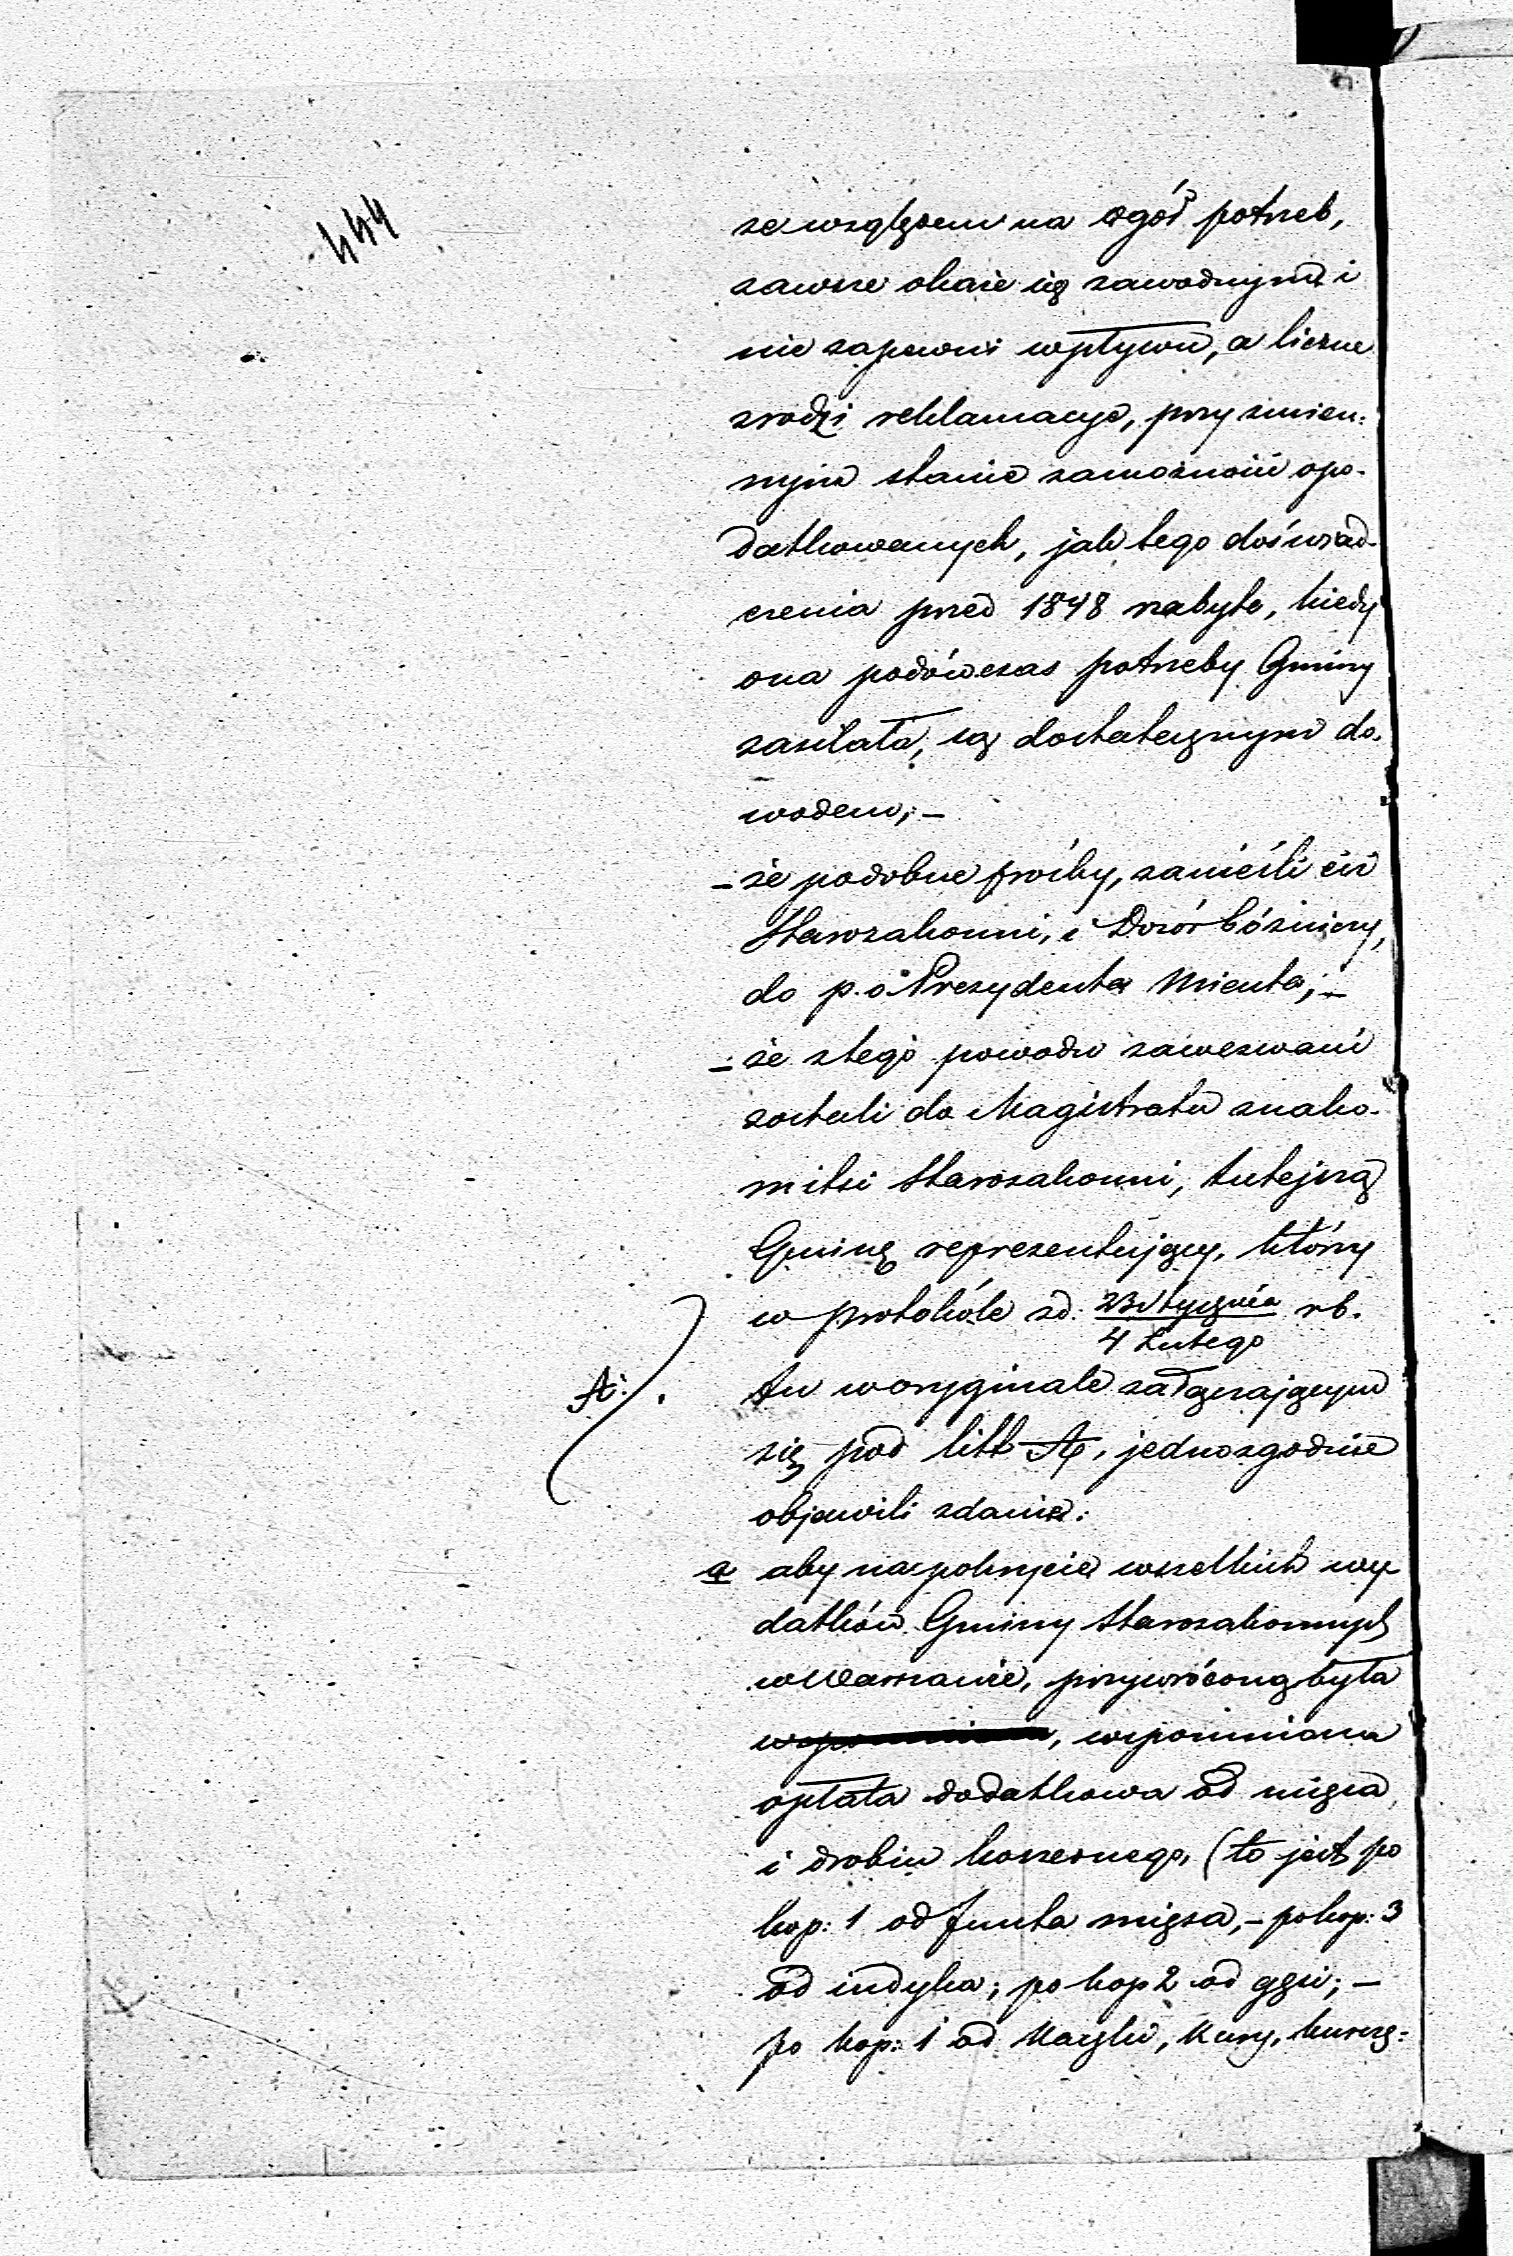 444
ze względem na ogół potrzeb,
zawsze okaże się zawodnym i
nie zapewni wpływu, a liczne
zrodzi reklamacye, przy zmien:
nym stanie zamożności opo-
datkowanych, jak tego doświad-
czenia przed 1848 nabyte, kiedy
ona podówczas potrzeby Gminy
zasilała, są dostatecznym do-
wodem; –
– że podobne prośby, zanieśli ciż
Starozakonni, i Dozór bóżniczy,
do p. o. Prezydenta Miasta; –
– że z tego powodu zawezwani
zostali do Magistratu znako-
mitsi Starozakonni, tutejszą
Gminę reprezentujący, którzy
w protokóle z d. 23 Stycznia rb.
4 Lutego
A.
tu w oryginale załączającym
się pod litt A, jednozgodnie
objawili zdanie:
a aby na pokrycie wszelkich wy-
datków Gminy Starozakonnych
w Warszawie, przywróconą była
, wspomniana
opłata dodatkowa od mięsa
i drobiu koszernego, (to jest po
kop: 1 od funta mięsa, – po kop: 3
od indyka; po kop 2 od gęsi; –
po kop: 1 od Kaczki, Kury, kurczę=